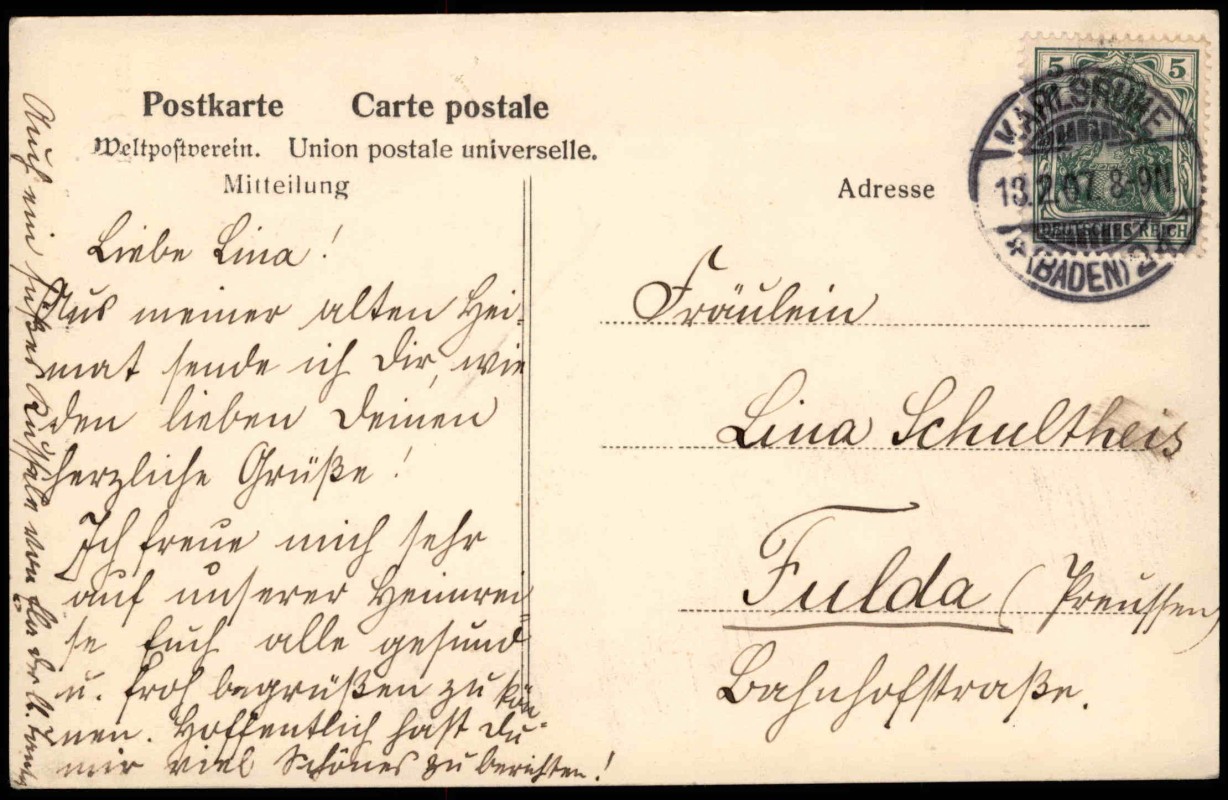 Postkarte Carte postale
Weltpostverein. Union postale universelle.
Mitteilung
Adresse
5 5
DEUTSCHES REICH
KARLSRUHE
13.2.07. 8-9N.
*(BADEN) 2
Liebe Lina!
Aus meiner alten Hei-
mat sende ich Dir, wie
den lieben Deinen
herzliche Grüße!
Ich freue mich sehr
auf unserer Heimrei
se Euch alle gesund
u. froh begrüßen zu kön-
nen. Hoffentlich hast Du
mir viel Schönes zu berichten!
Auch ein süßes von der
Fräulein
Lina Schultheis
Fulda (Preussen)
Bahnhofstraße.